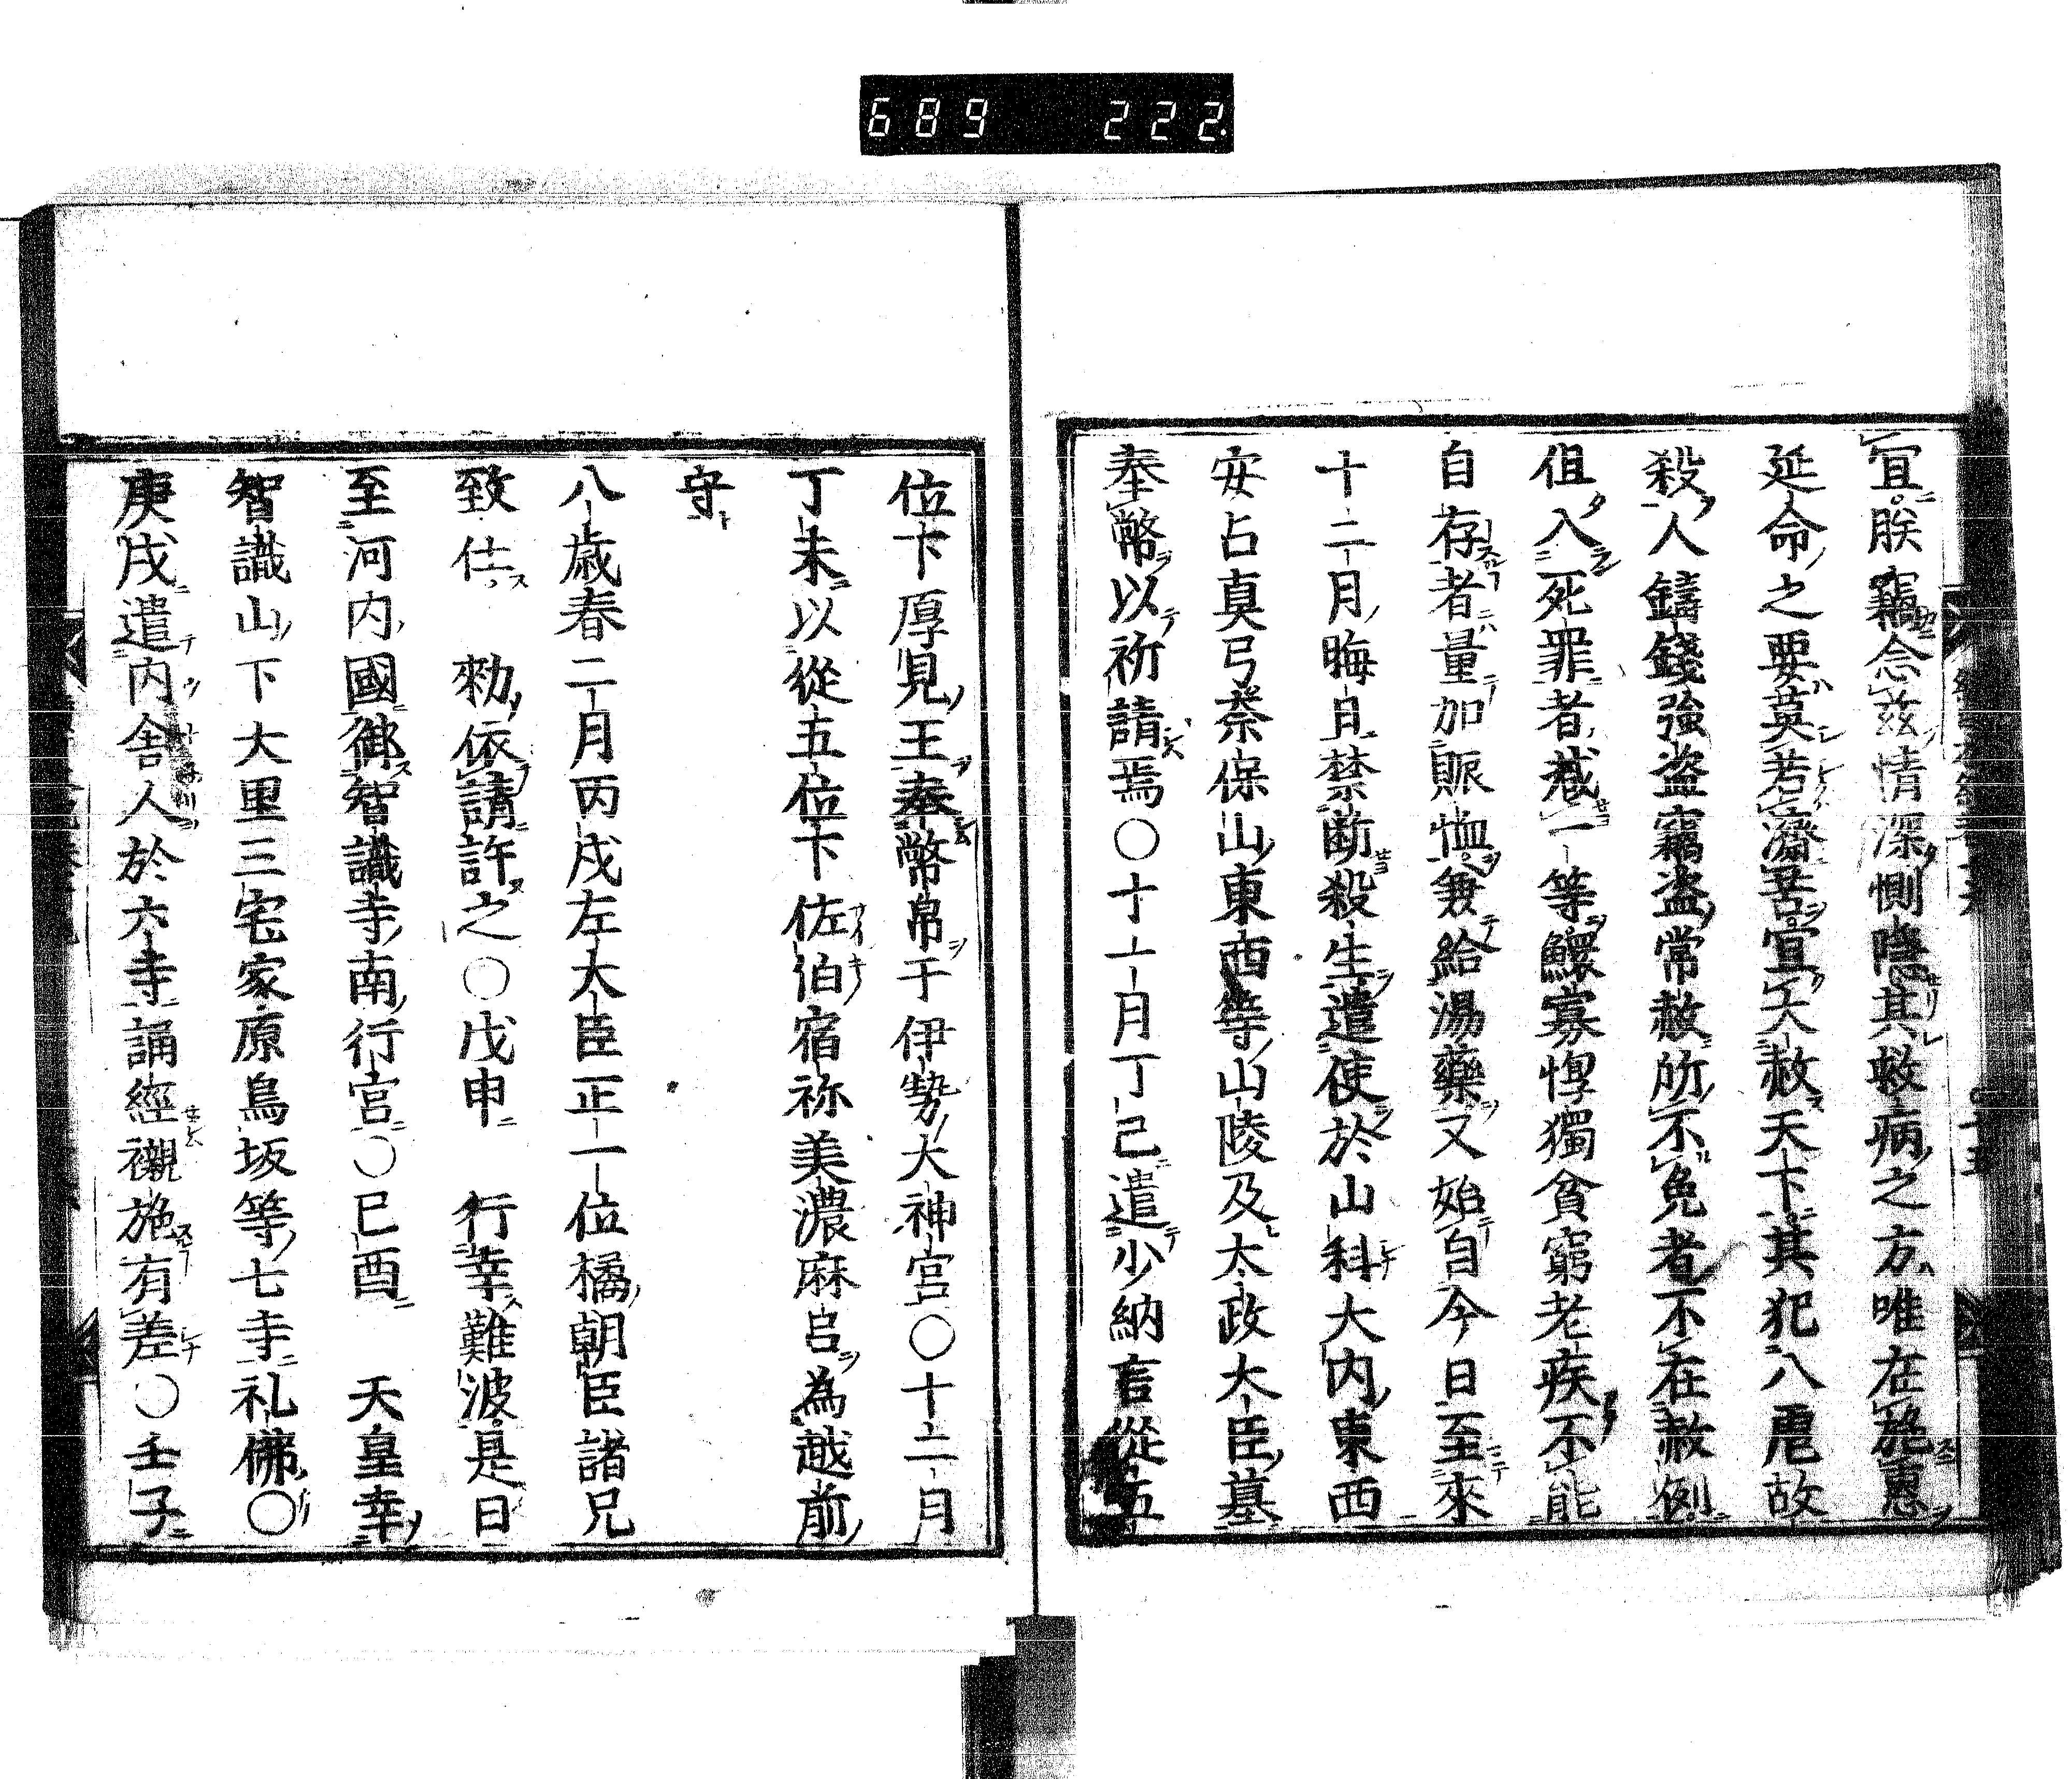 689 222
宜朕竊念兹情深惻隱其救病之方唯在施惠
延命之要莫若濟苦宜大赦天下其犯八虐故
殺人鑄錢強盗竊盗常赦所不免者不在赦例
但入死罪者減一等鰥寡惸獨貧窮老疾不能
自存者量加賑恤兼給湯藥又始自今日至來
十二月晦日禁断殺生遣使於山科大内東西
安占真弓奈保山東西等山陵及太政大臣墓
奉幣以祈請焉〇十一月丁己遣少納言從五
位下厚見王奉幣帛于伊勢大神宮〇十二月
丁未以從五位下佐伯宿祢美濃麻呂為越前
守
八歳春二月丙戌左大臣正一位橘朝臣諸兄
致仕 勅依請許之〇戊申 行幸難波是日
至河内國御智識寺南行宮〇已酉 天皇幸
智識山下大里三宅家原鳥坂等七寺礼佛〇
庚戌遣内舎人於六寺誦經襯施有差〇壬子